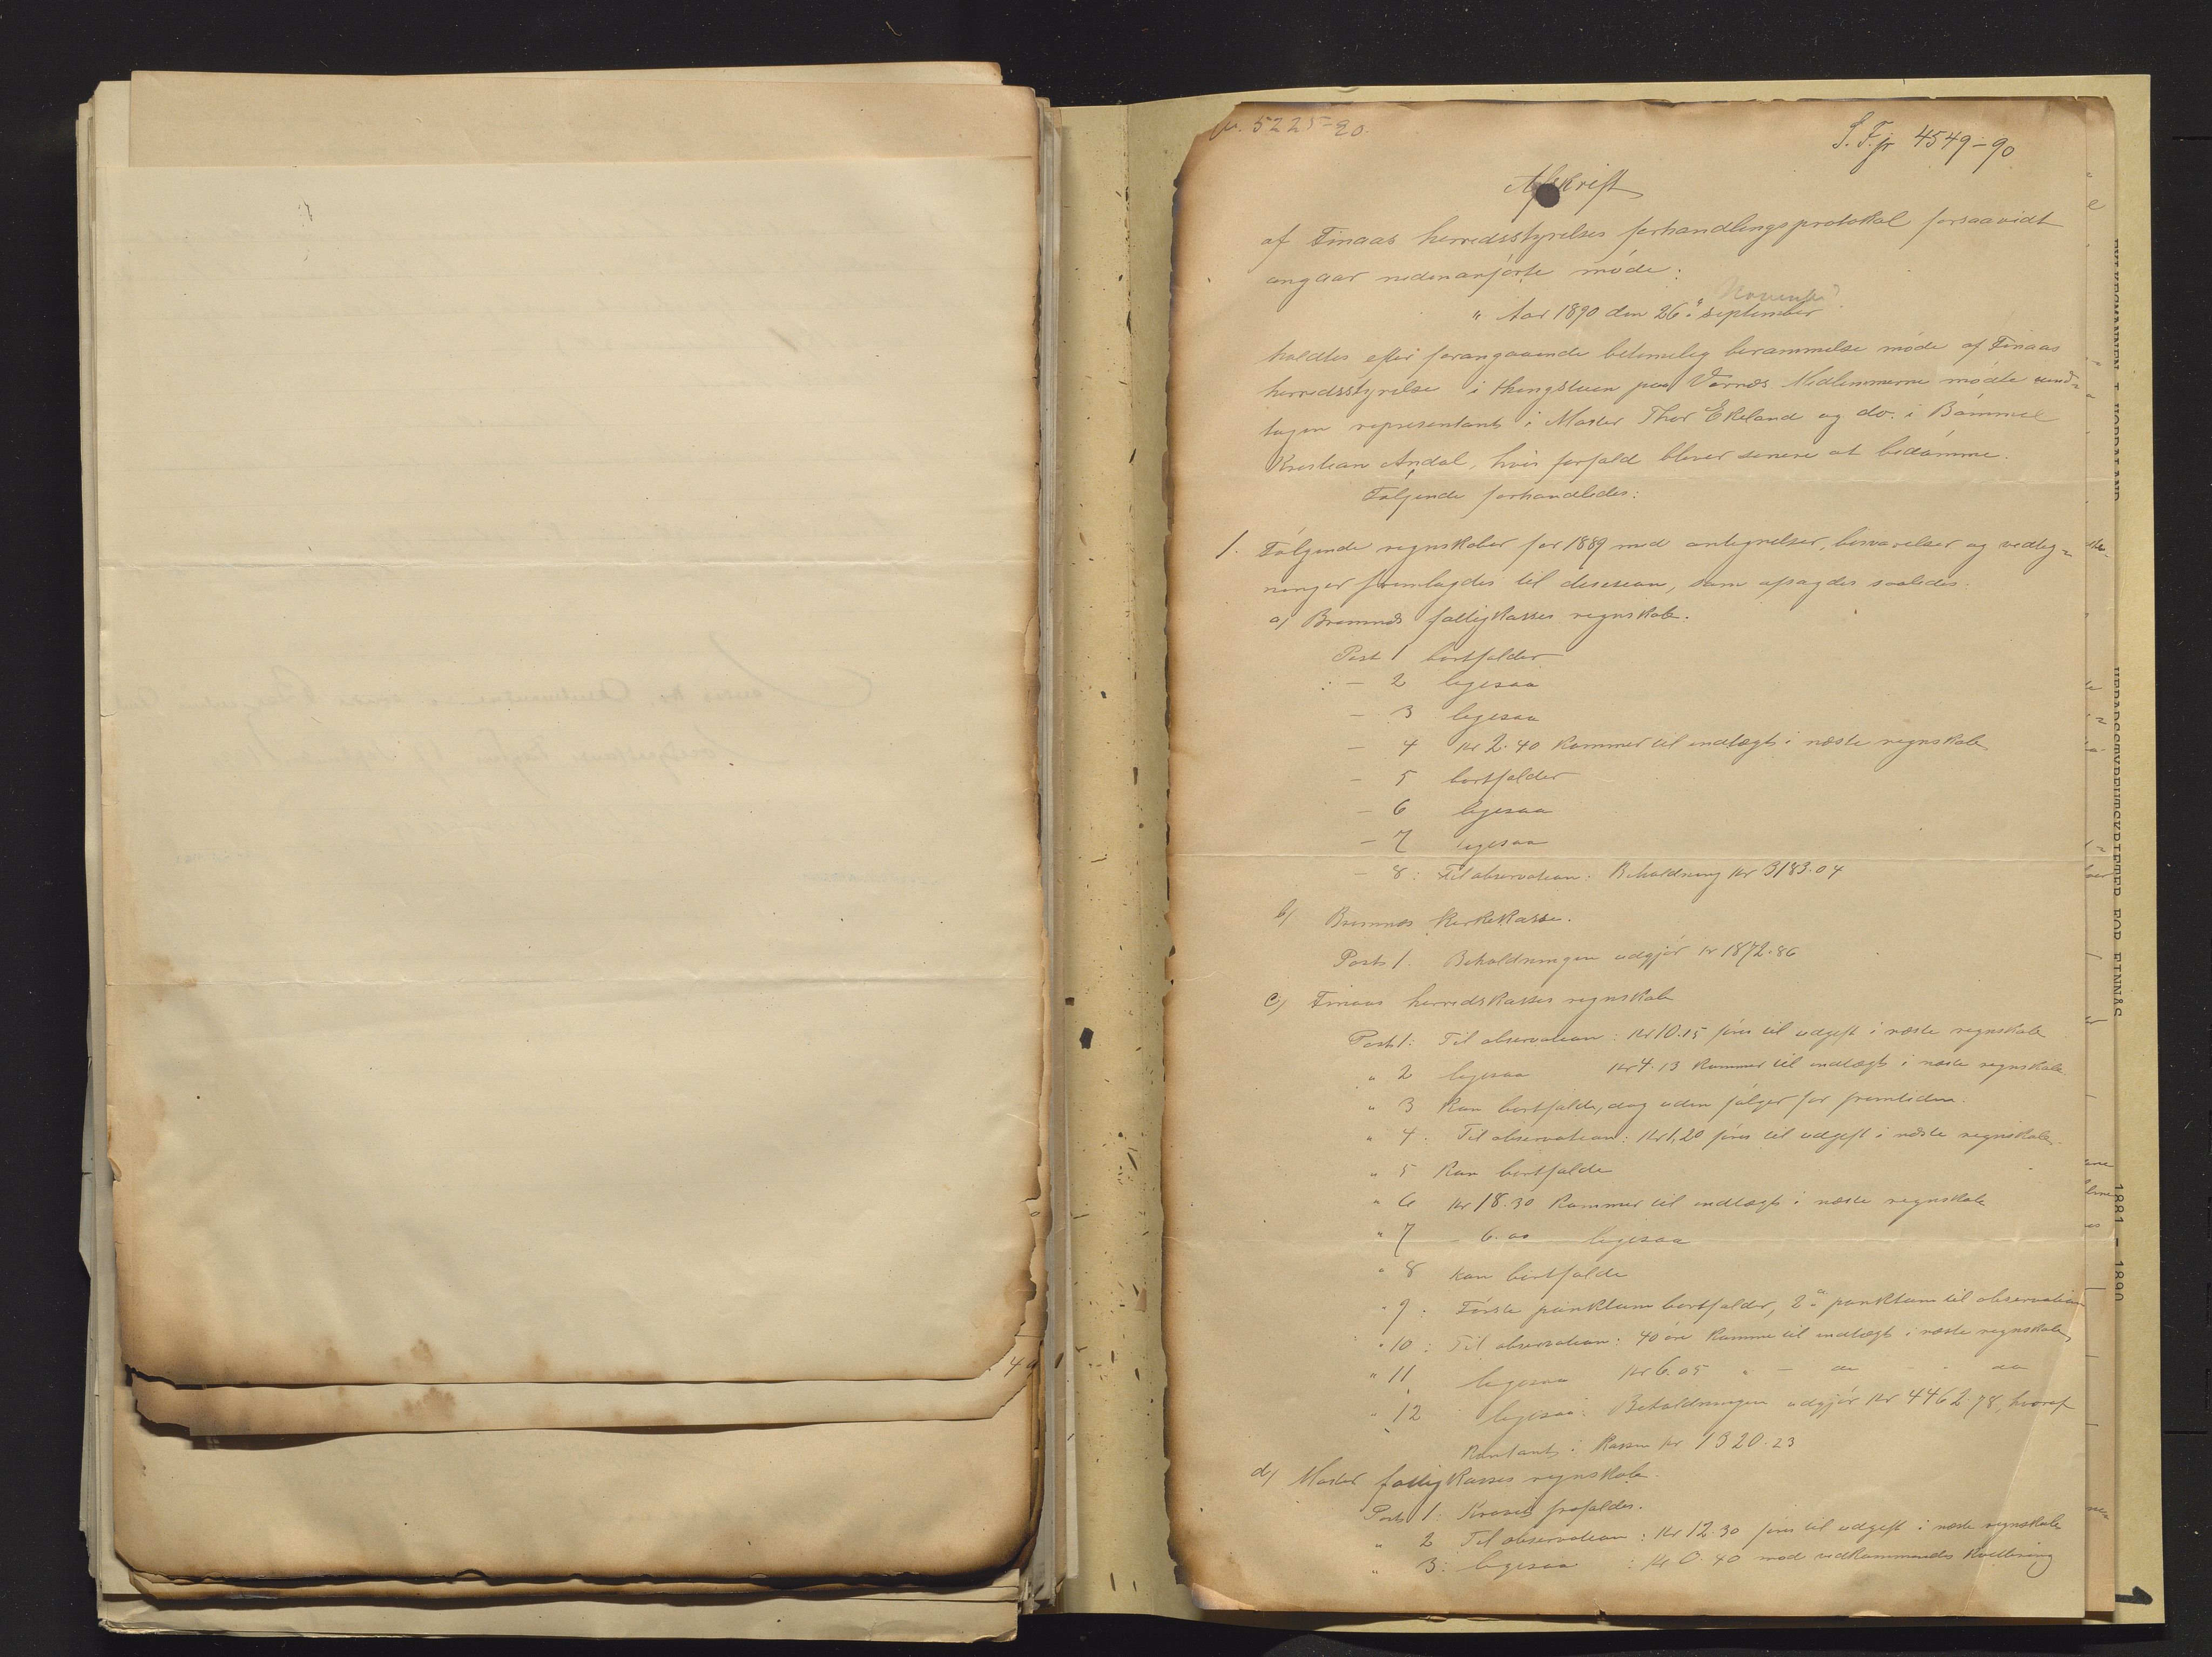 jr. 5225-90.
S. F. jr 4549-90
Afskrift
af Finaas herredsstyrelses forhandlingsprotokol forsaavidt
angaar nedenanførte møde:
November
" Aar 1890 den 26de september
holdtes efter forangaaende betimelig berammelse møde af Finaas
herredsstyrelse i thingstuen paa Vernes Medlemmerne mødte und-
tagen representant i Moster Thor Ekeland og do. i Bømmel
Kristian Andal, hvis forfald bliver senere at bedømme.
Følgende forhandledes:
1. Følgende regnskaber for 1889 med antegnelser, besvarelser og vedteg-
ninger fremlagdes til desesion, som afsagdes saaledes.
a) Bremnes fattigkasses regnskab.
Post 1 bortfalder
: - 2 ligesaa
- 3 ligesaa
- 4 kr 2.40 kommer til indtægt i næste regnskab
- 5 bortfalder
- 6 ligesaa
- 7 ligesaa
- 8: Til observation. Beholdning kr 3183.04
b) Bremnes kirkekasse.
Post 1. Beholdningen udgjør kr 1872.86
c) Finaas herredskasses regnskab
Post 1: Til observation: kr 10.15 føres til udgift i næste regnskab
" 2 ligesaa kr 4.13 kommer til indtægt i næste regnskab
" 3 kan bortfalde, dog uden følger for fremtiden.
" 4. Til observation: kr 1,20 føres til udgift i næste regnskab.
" 5 kan bortfalde
" 6 kr 18.30 kommer til indtægt i næste regnskab
" 7 - 6.00 ligesaa
" 8 kan bortfalde
" 9. Første punktum bortfalder, 2det punktum til observation
" 10: Til observation: 40 øre komme til indtægt i næste regnskab,
" 11 ligesaa kr 6.05 " - do - do
" 12 ligesaa: Beholdningen udgjør kr 4462.78, hvoraf
kontant i kassen kr 1320.23
d) Moster fattigkasses regnskab.
Post 1. Kravet frafaldes.
" 2 Til observation: kr 12.30 føres til udgift i næste regnskab
" 3: ligesaa: kr 0.40 mod vedkommendes kvittering
HERREDSSTYREUTSKRIFTER FOR FINNÅS
1881 - 1890
1